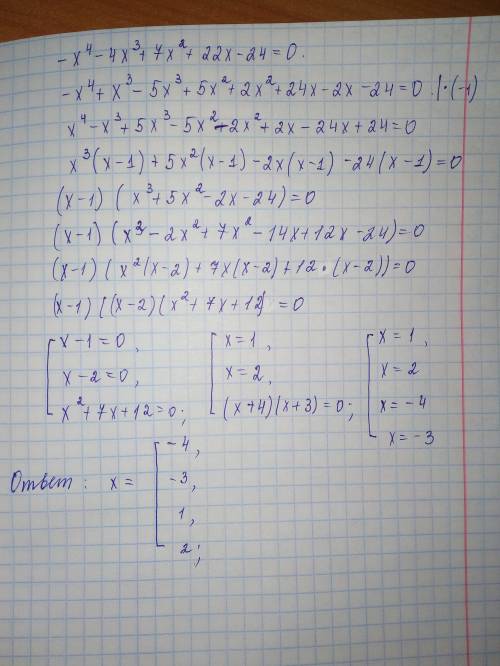 -x⁴ - 4x³ + 7x² + 22x - 24 = 0.
-x⁴ + x³ - 5x³ + 5x² + 2x² + 24x - 2x - 24 = 0 . | · (-1)
x⁴ - x³ + 5x³ - 5x² - 2x² + 2x - 24x + 24 = 0
x³(x-1) + 5x²(x-1) - 2x(x-1) - 24(x-1) = 0
(x-1) (x³ + 5x² - 2x - 24) = 0
(x-1) (x³ - 2x² + 7x² - 14x + 12x - 24) = 0
(x-1) (x²(x-2) + 7x(x-2) + 12 · (x-2)) = 0
(x-1) ((x-2)(x² + 7x + 12) = 0
[ x-1=0,
x-2=0,
x² + 7x + 12 = 0;
[ x=1,
x=2,
(x+4)(x+3) = 0;
[ x=1,
x=2
x=-4
x=-3
Ответ: x = [ -4,
-3,
1,
2;